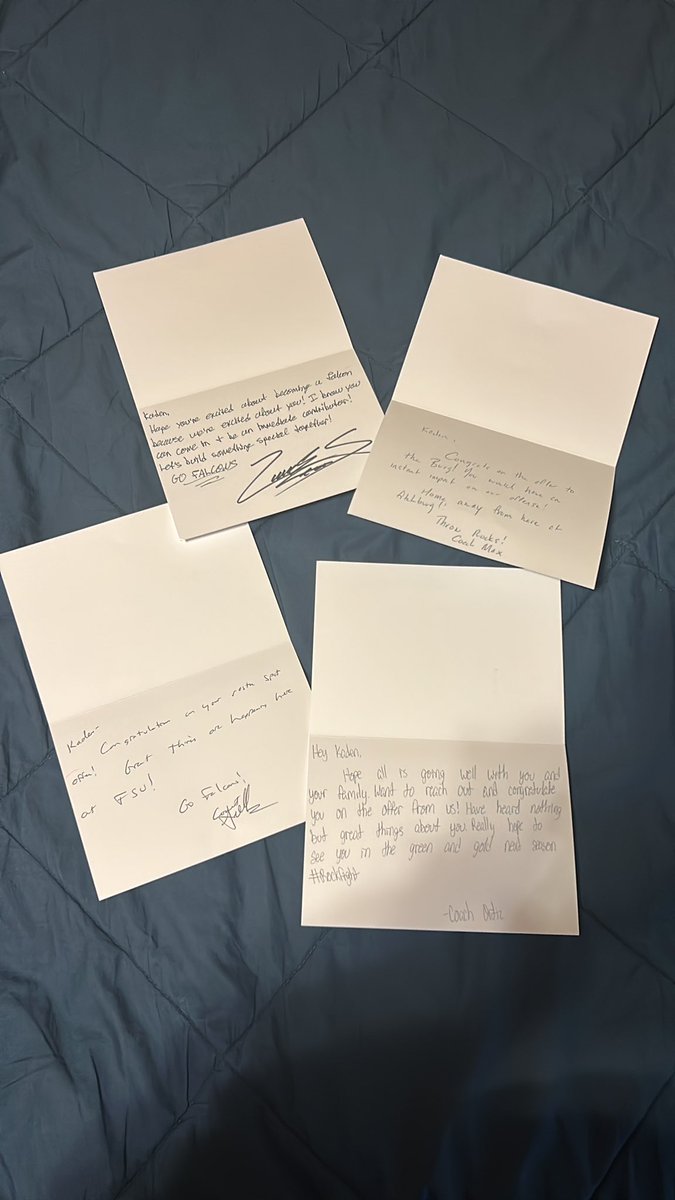 Kaden,
Hope you're excited about becoming a Falcon
because we're excited about you! I know you
can come in + be an immediate contributor!
Let's build something special together!
GO FALCONS
Kaden,
Congrats on the offer to
the Burg! You would have an
instant impact on our offense!
Home away from home at
Throw Rocks!
Coach Max
Kaden-
Congratulations on your roster spot
offer! Great things are happening here
at FSU!
Go Falcons!
Hey Kaden,
Hope all is going well with you and
your family. Want to reach out and congratulate
you on the offer from us! Have heard nothing
but great things about you. Really hope to
see you in the green and gold next season
#Rockfight
-Coach Ortiz